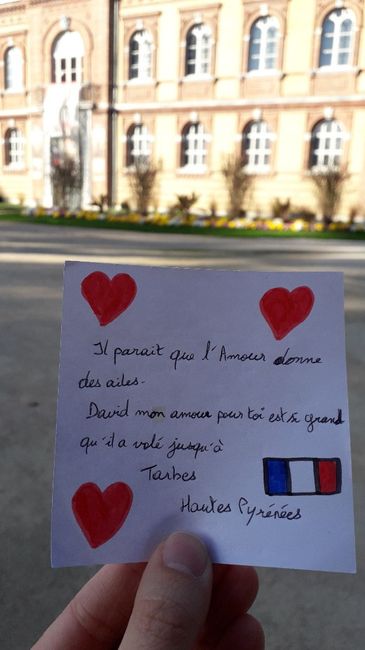 Il parait que l'Amour donne
des ailes.
David mon amour pour toi est si grand
qu'il a volé jusqu'à
Tarbes
Hautes Pyrénées